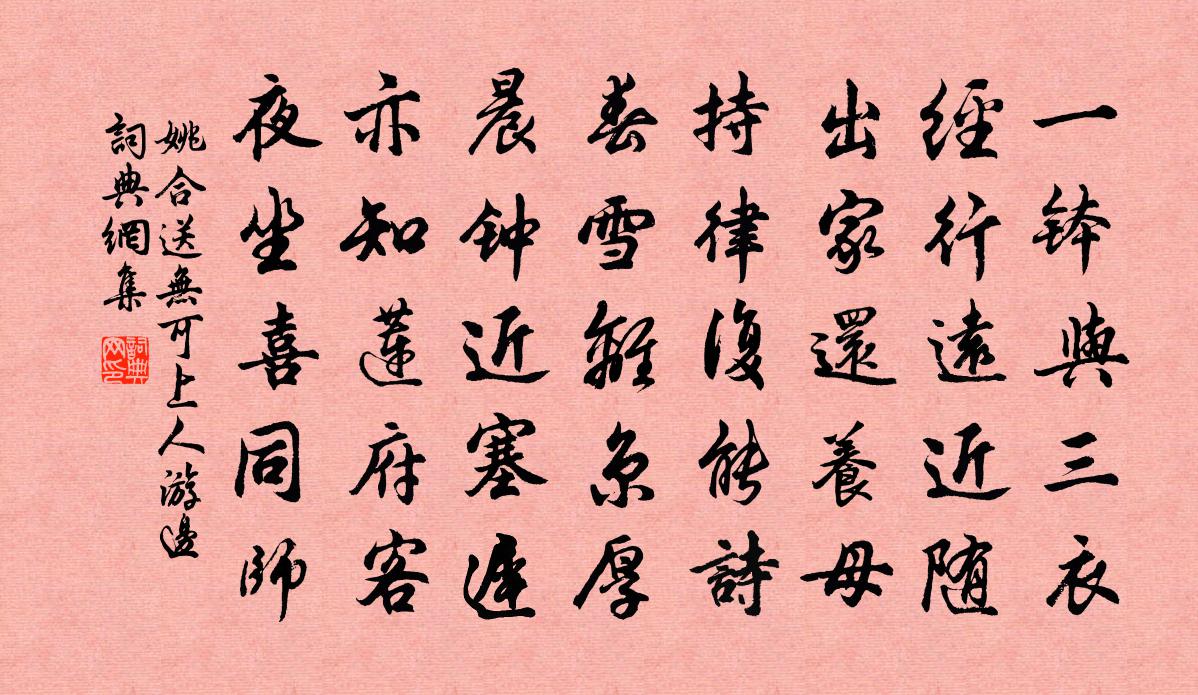 一鉢與三衣
經行遠近隨
出家還養母
持律復能詩
春雪離京厚
晨钟近塞遲
亦知蓮府客
夜坐喜同師
姚合送無可上人游邊
詞典網集
詞典网印